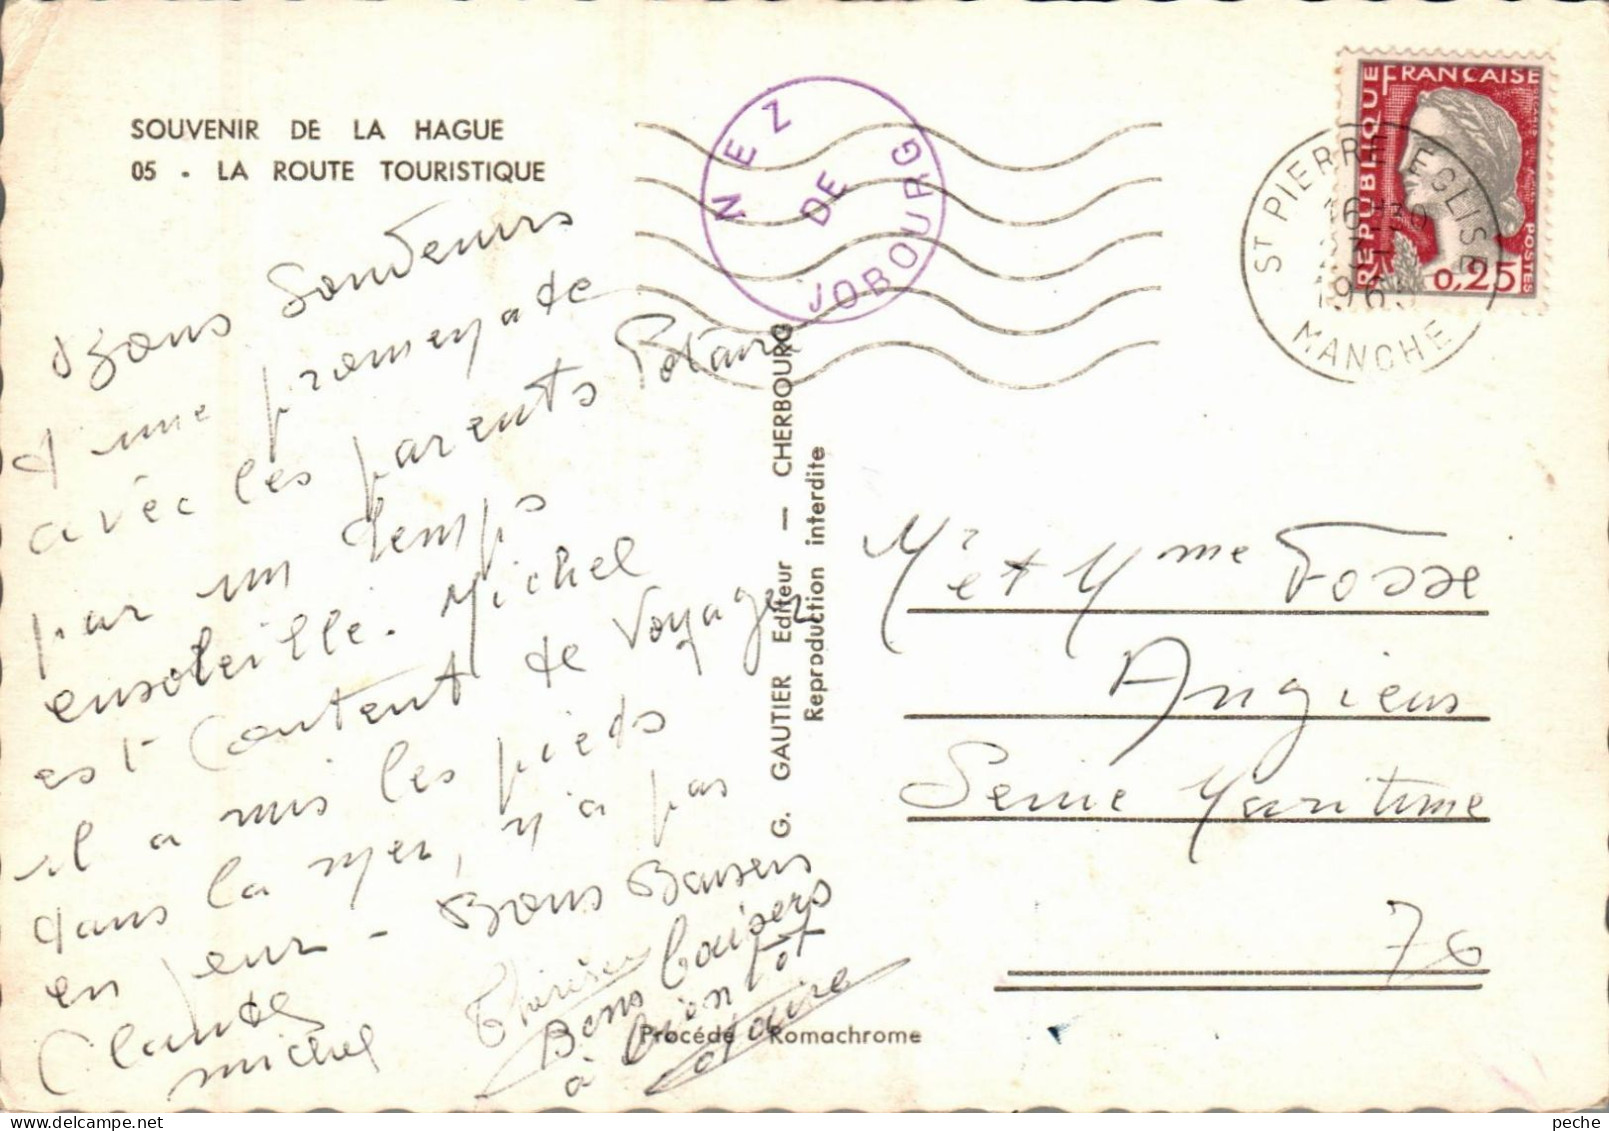 SOUVENIR DE LA HAGUE
05 - LA ROUTE TOURISTIQUE
Bons Souvenirs
d'une promenade
avec les parents Potaire
par un temps
ensoleillé. Michel
est content de voyager
il a mis les pieds
dans la mer, n'a pas
eu peur - Bons Baisers
Claude
michel
Thérèse
Bons baisers
à bientôt
Potaire
NEZ DE JOBOURG
G. GAUTIER Editeur — CHERBOURG
Reproduction interdite
Procédé Romachrome
REPUBLIQUE FRANCAISE
POSTES
0,25
ST PIERRE EGLISE
MANCHE
Mr et Mme Fosse
Angiens
Seine Maritime
76
peche